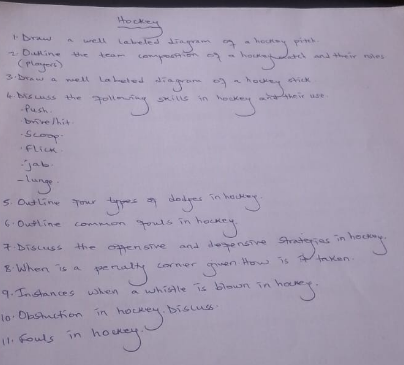 Hockey
1. Draw a well labeled diagram of a hockey pitch.
2. Outline the team composition of a hockey match and their roles
(players)
3. Draw a well labeled diagram of a hockey stick
4. Discuss the following skills in hockey their use.
- Push
- Drive/hit
- Scoop
- Flick
- jab
- lunge.
5. Outline four types of dodges in hockey
6. Outline common fouls in hockey
7. Discuss the offensive and defensive strategies in hockey.
8. When is a penalty corner given How is it taken.
9. Instances when a whistle is blown in hockey.
10. Obstruction in hockey. Discuss.
11. Fouls in hockey.